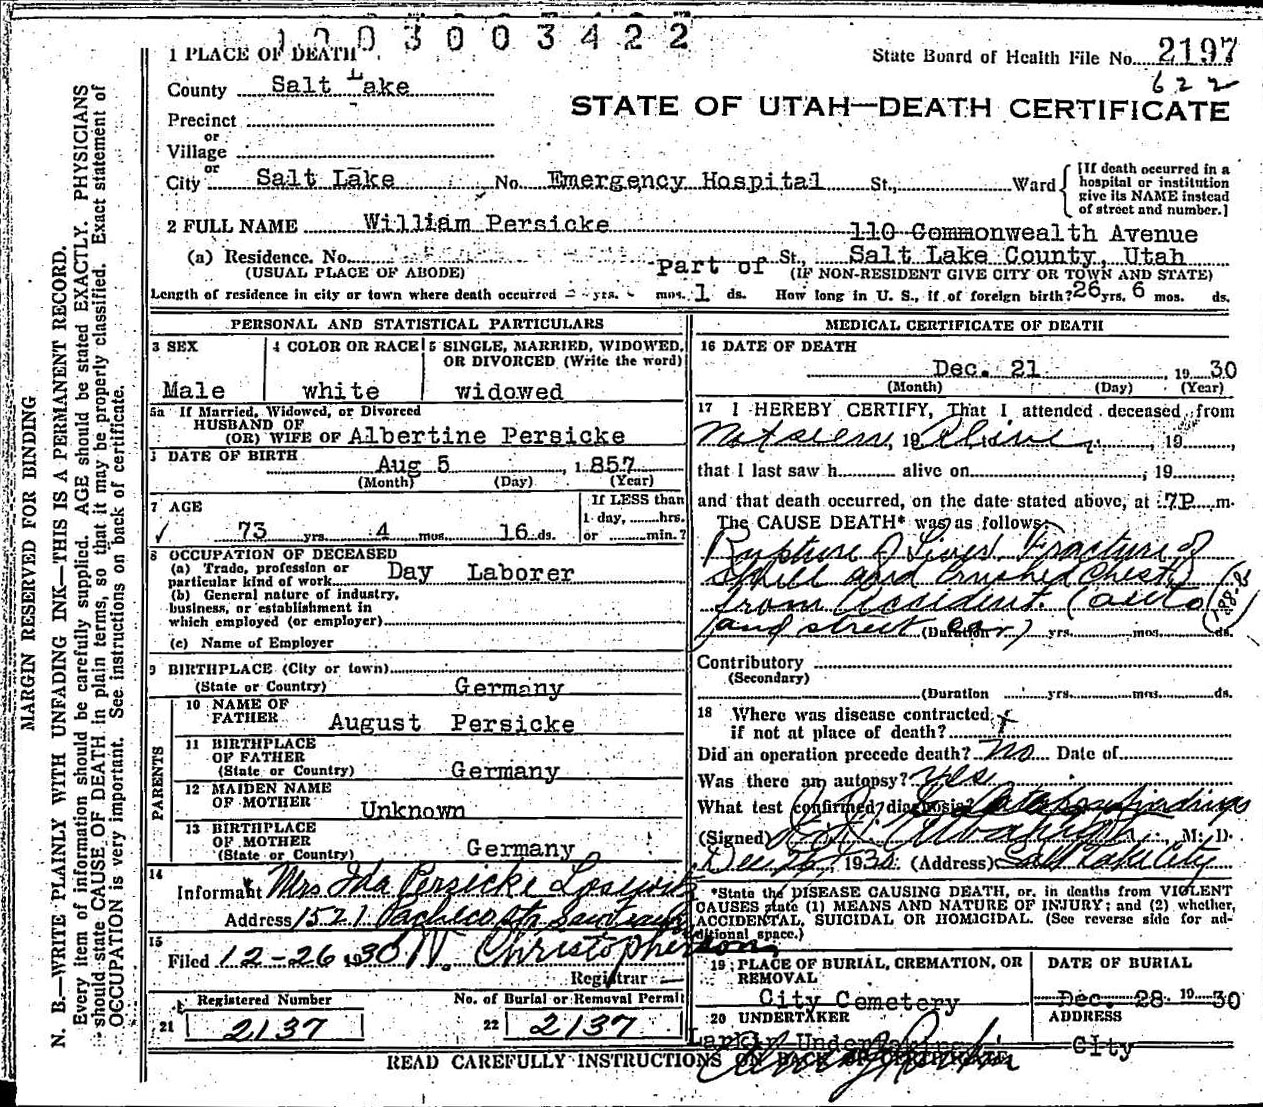 1003003422
1 PLACE OF DEATH
State Board of Health File No. 2197
622
County Salt Lake
STATE OF UTAH—DEATH CERTIFICATE
Precinct
or
Village
or
City Salt Lake No. Emergency Hospital St., Ward
[If death occurred in a hospital or institution give its NAME instead of street and number.]
2 FULL NAME William Persicke
110 Commonwealth Avenue
(a) Residence. No. St., Salt Lake County, Utah
(USUAL PLACE OF ABODE) Part of (IF NON-RESIDENT GIVE CITY OR TOWN AND STATE)
Length of residence in city or town where death occurred yrs. mos. 1 ds. How long in U. S., if of foreign birth? 26 yrs. 6 mos. ds.
PERSONAL AND STATISTICAL PARTICULARS
3 SEX
4 COLOR OR RACE
5 SINGLE, MARRIED, WIDOWED,
OR DIVORCED (Write the word)
Male white widowed
5a If Married, Widowed, or Divorced
HUSBAND OF
(OR) WIFE OF Albertine Persicke
DATE OF BIRTH
Aug 5, 1857
(Month) (Day) (Year)
7 AGE
If LESS than
1 day, hrs.
73 yrs. 4 mos. 16 ds. or min.?
8 OCCUPATION OF DECEASED
(a) Trade, profession or
particular kind of work Day Laborer
(b) General nature of industry,
business, or establishment in
which employed (or employer)
(c) Name of Employer
9 BIRTHPLACE (City or town)
(State or Country) Germany
PARENTS
10 NAME OF
FATHER August Persicke
11 BIRTHPLACE
OF FATHER
(State or Country) Germany
12 MAIDEN NAME
OF MOTHER Unknown
13 BIRTHPLACE
OF MOTHER
(State or Country) Germany
14
Informant Mrs Ida Persicke
Address 1521 Pacheco St.
15
Filed 12-26 1930 N. Christophersons
Registrar
Registered Number
21 2137
No. of Burial or Removal Permit
22 2137
MEDICAL CERTIFICATE OF DEATH
16 DATE OF DEATH
Dec. 21 19 30
(Month) (Day) (Year)
17 I HEREBY CERTIFY, That I attended deceased from
Not seen, 19 Alive, 19
that I last saw h alive on , 19
and that death occurred, on the date stated above, at 7P m.
The CAUSE DEATH* was as follows:
Rupture of Liver Fracture of
Skull and crushed chest
from Accident. (auto
and street car)
188-85
(Duration yrs. mos. ds.
Contributory
(Secondary)
(Duration yrs. mos. ds.
18 Where was disease contracted
if not at place of death?
Did an operation precede death? No Date of
Was there an autopsy? Yes
What test confirmed diagnosis? findings
(Signed) M. D.
Dec 26, 1930 (Address) Salt Lake City
*State the DISEASE CAUSING DEATH, or, in deaths from VIOLENT
CAUSES state (1) MEANS AND NATURE OF INJURY; and (2) whether,
ACCIDENTAL, SUICIDAL OR HOMICIDAL. (See reverse side for additional space.)
19 PLACE OF BURIAL, CREMATION, OR
REMOVAL
City Cemetery
DATE OF BURIAL
Dec. 28 19 30
20 UNDERTAKER
Larkin Undertaking
ADDRESS
City
READ CAREFULLY INSTRUCTIONS ON BACK OF CERTIFICATE
MARGIN RESERVED FOR BINDING
N. B.—WRITE PLAINLY WITH UNFADING INK—THIS IS A PERMANENT RECORD.
Every item of information should be carefully supplied. AGE should be stated EXACTLY. PHYSICIANS
should state CAUSE OF DEATH in plain terms, so that it may be properly classified. Exact statement of
OCCUPATION is very important. See instructions on back of certificate.